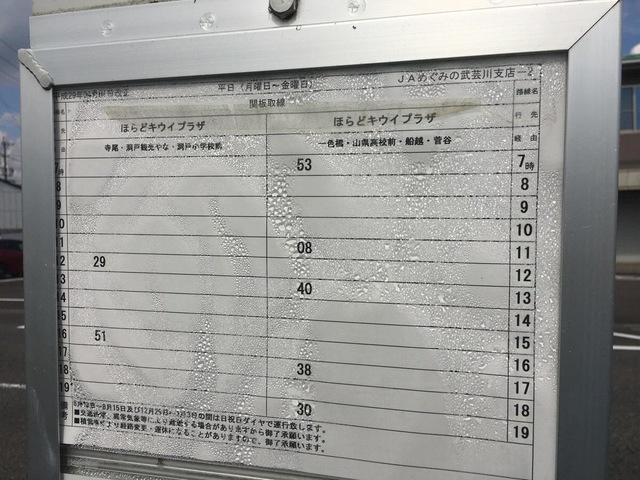 平成29年04月01日改正 平日(月曜日~金曜日) JAめぐみの武芸川支店-2
関板取線 路線名
ほらどキウイプラザ ほらどキウイプラザ 行先
寺尾・洞戸観光やな・洞戸小学校前 一色橋・山県高校前・船越・菅谷 経由
7 53 7時
8 8
9 9
10 10
11 08 11
12 29 12
13 40 13
14 14
15 15
16 51 16
17 38 17
18 18
19 30 19
備考
8月13日~8月15日及び12月29日~1月3日の間は日祝日ダイヤで運行致します。
■交通渋滞、異常気象等により遅延する場合がありますから御了承願います。
■積雪等により経路変更・運休になることがありますので、御了承願います。